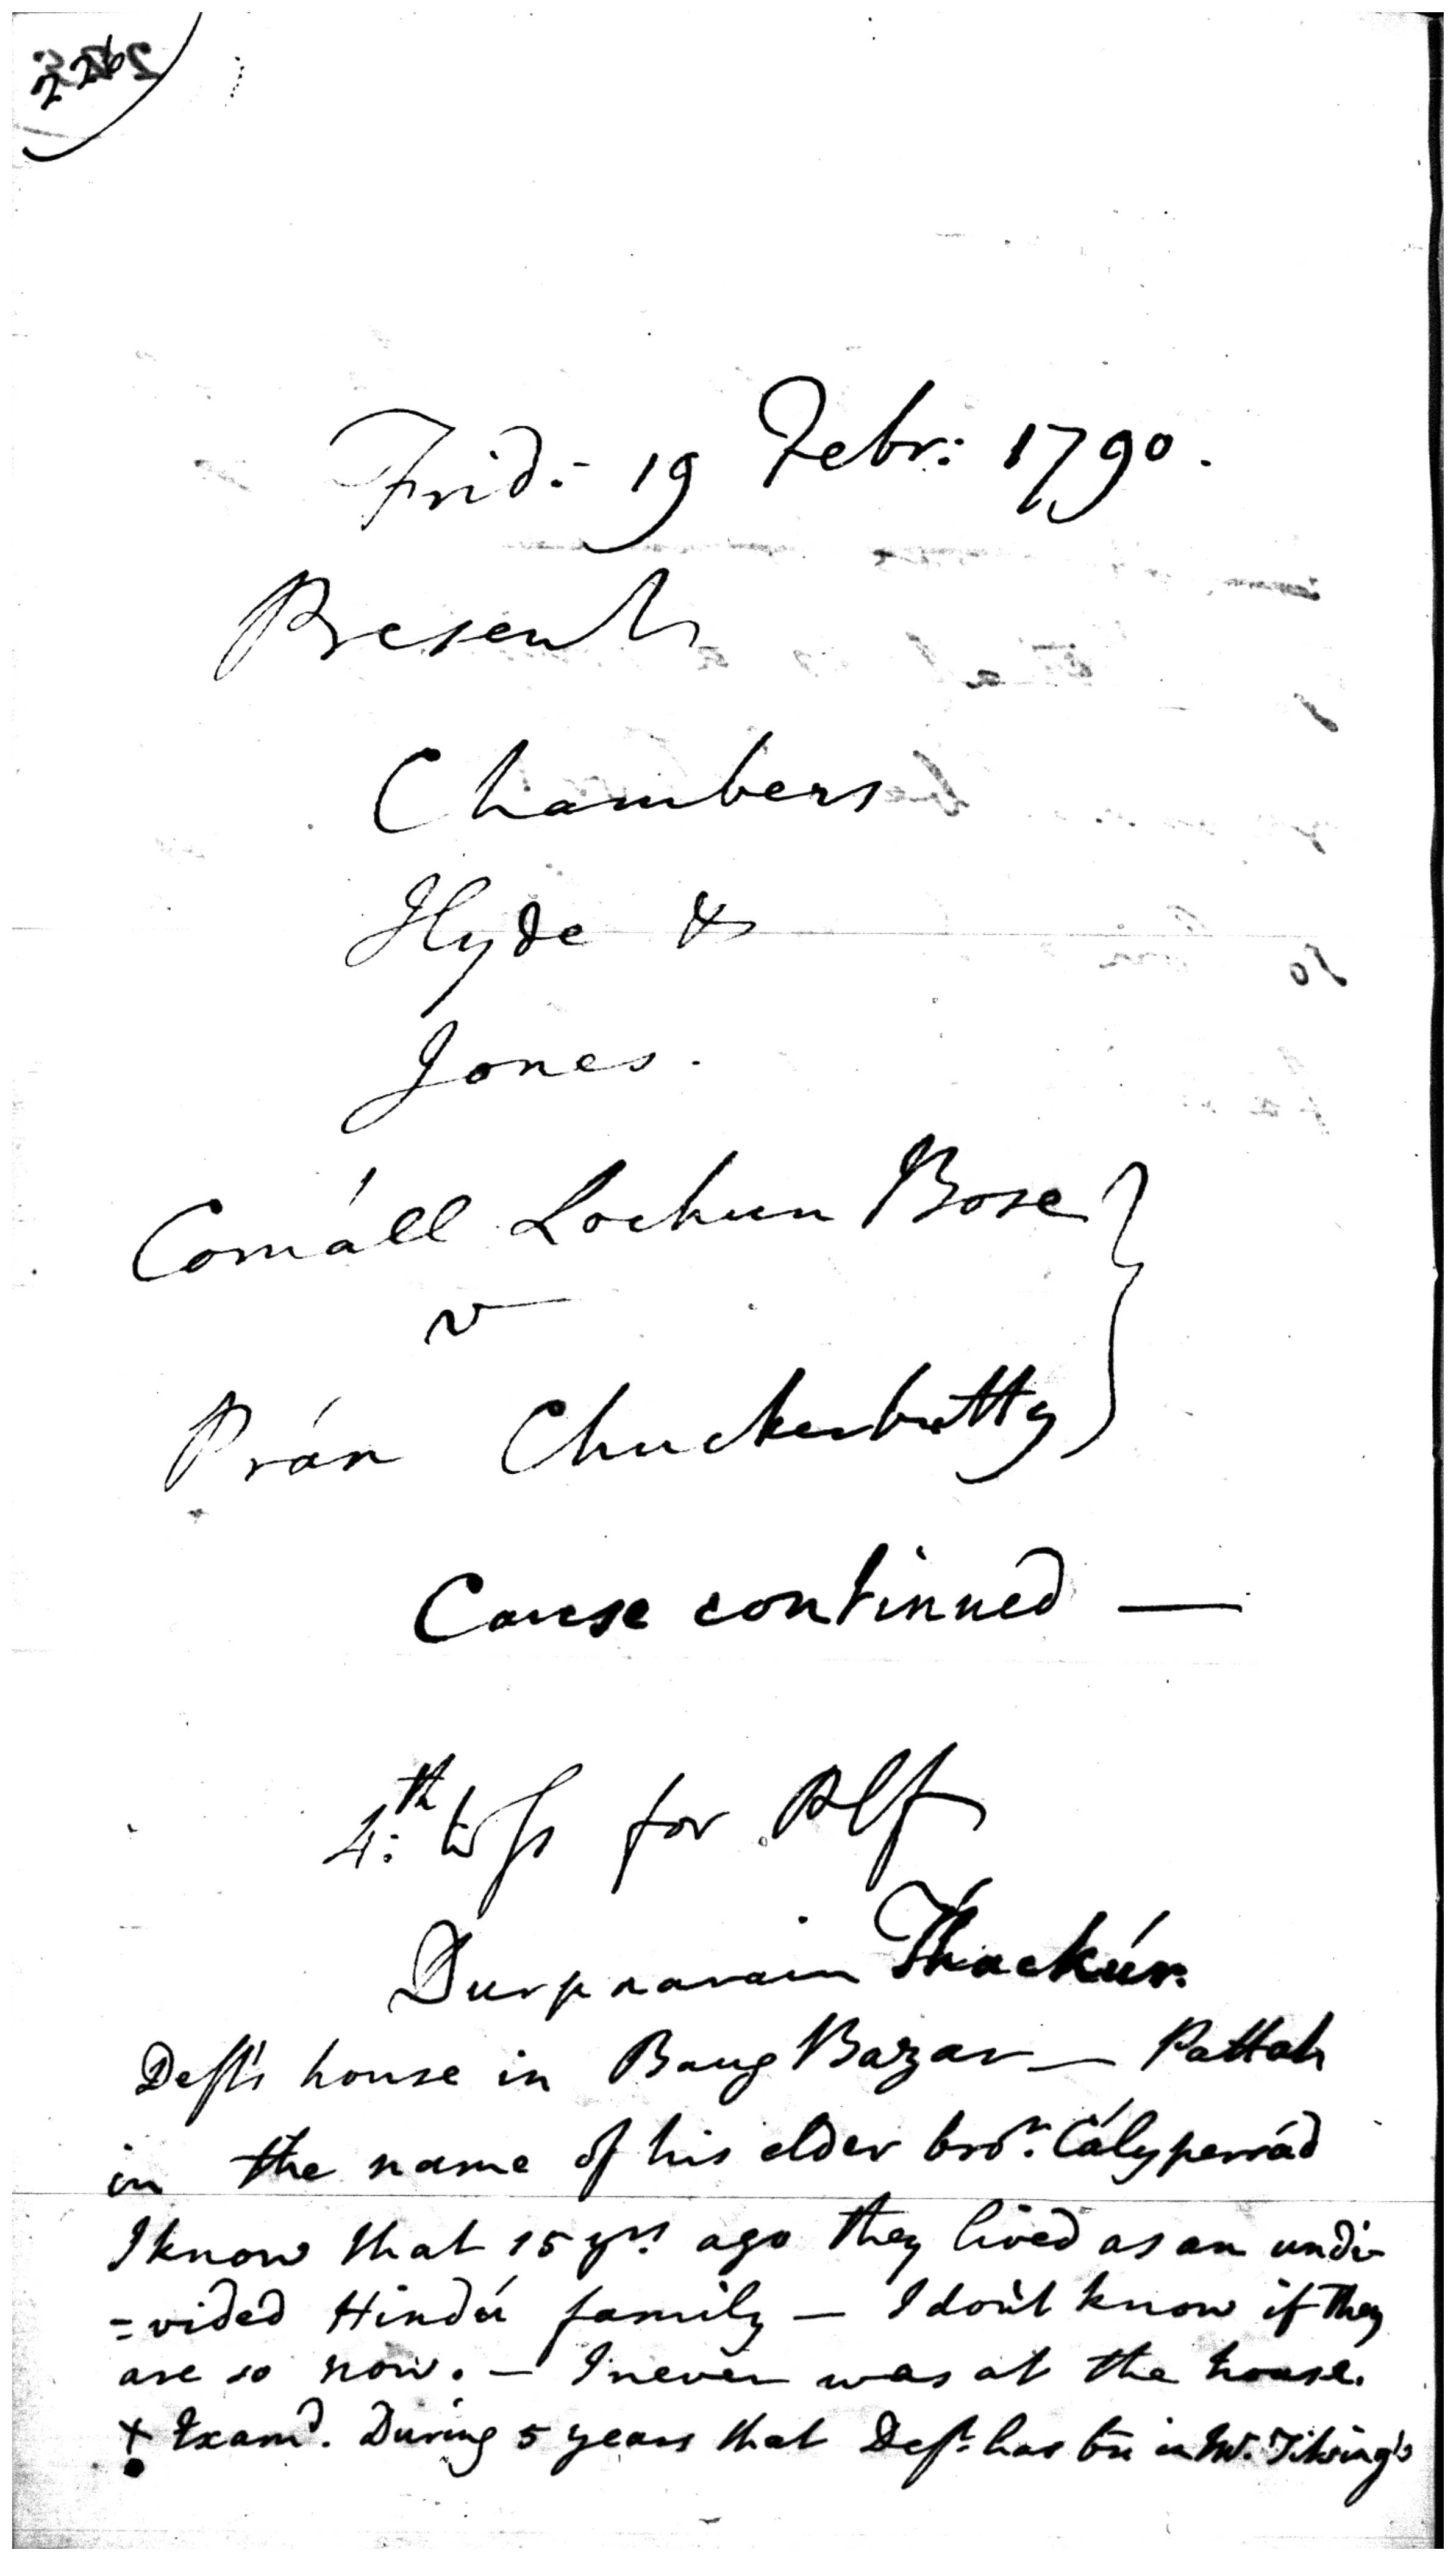 Frid: 19 Febr: 1790.
Present
Chambers
Hyde &
Jones.
Comáll Lochun Bose
v
Prán Chuckerbutty
Cause continued —
4:th Wss for Plf
Durpnarain Thackúr.
Deft's house in Baug Bazar — Pattah
in the name of his elder bror. Cálypersád
I know that 15 yrs ago they lived as an undi-
=vided Hindú family — I don't know if they
are so now. — I never was at the house.
+ Examd. During 5 years that Deft. has bn in